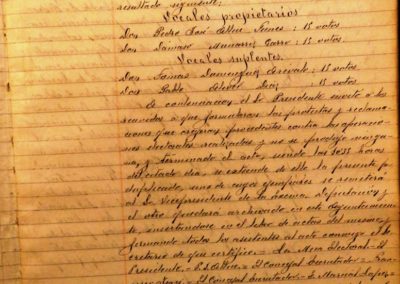 resultado siguiente:
Vocales propietarios
Don Pedro José Nunes : 15 votos.
Don Damaso Munarriz Carro : 15 votos.
Vocales suplentes.
Don Tomas Dominguez Arevalo : 15 votos.
Don Pablo Diaz : 15 votos.
A continuacion el Sr Presidente invitó a los
reunidos a que formularan las protestas y reclama-
ciones que creyeran procedentes contra las operacio-
nes electorales realizadas y no se produjo ningu-
na, y terminado el acto, siendo las horas
del citado dia, se extiende de ella la presente por
duplicado, uno de cuyos ejemplares se remitirá
al Sr Vicepresidente de la Excma Diputacion y
el otro quedará archivado en este Ayuntamien-
to, insertandose en el libro de actas del mismo, y
firmando todos los asistentes al acto conmigo el Se-
cretario de que certifico = La Mesa Electoral = El
Presidente = El Concejal Escrutador = Fran-
= El Concejal Escrutador = Marcial Lopez =